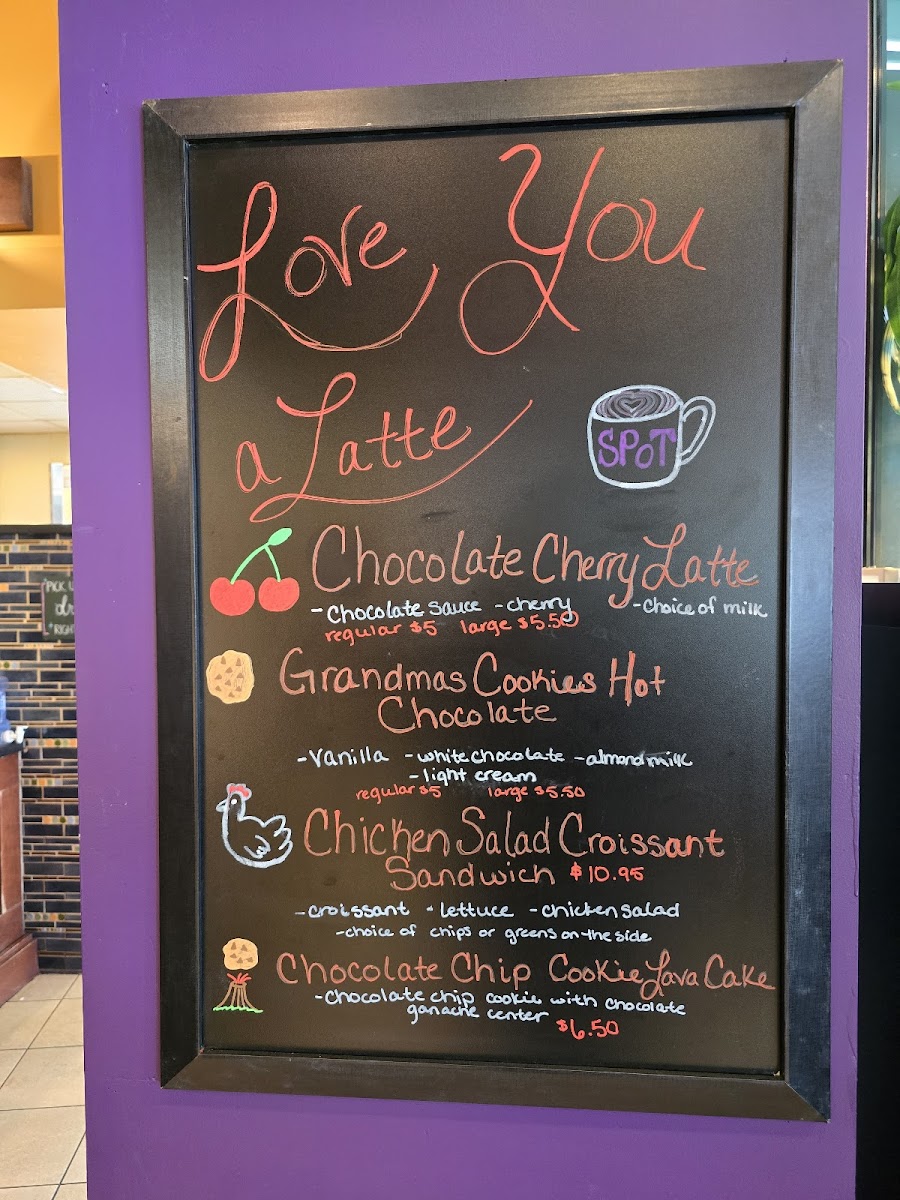 Love You
a Latte
SPOT
Chocolate Cherry Latte
- Chocolate sauce - cherry - choice of milk
regular $5 large $5.50
Grandmas Cookies Hot
Chocolate
- Vanilla - white chocolate - almond milk
- light cream
regular $5 large $5.50
Chicken Salad Croissant
Sandwich $10.95
- croissant - lettuce - chicken salad
- choice of chips or greens on the side
Chocolate Chip Cookie Lava Cake
- Chocolate chip cookie with chocolate
ganache center $6.50
PICK